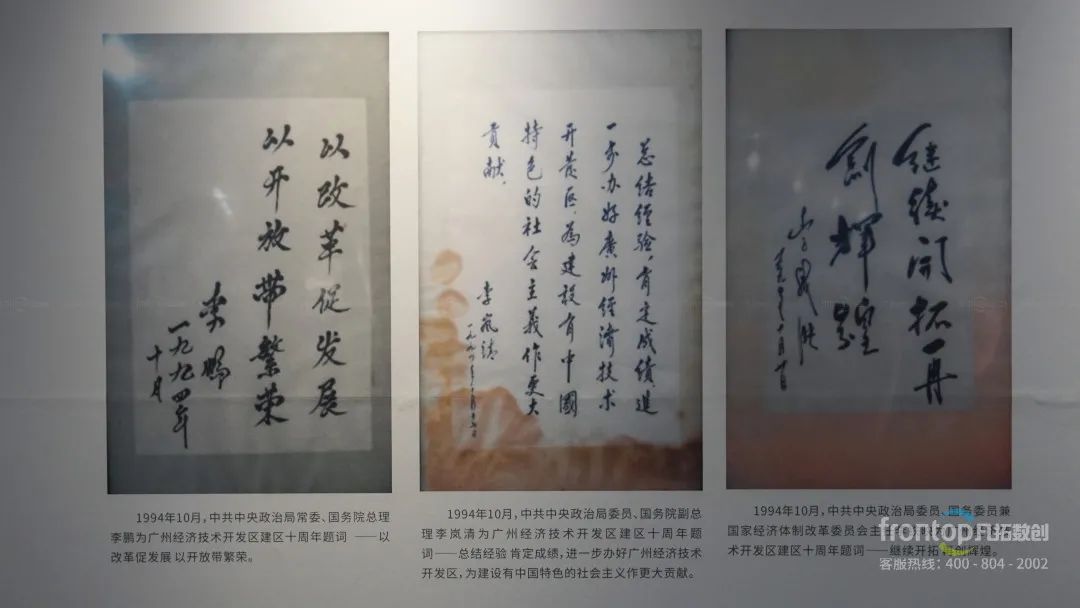 以改革促发展
以开放带繁荣
李鹏
一九九四年
十月
总结经验，肯定成绩进
一步办好廣州经济技术
开发区，為建设有中國
特色的社会主义作更大
贡献。
李岚清
继续开拓再
創辉煌
1994年10月，中共中央政治局常委、国务院总理
李鹏为广州经济技术开发区建区十周年题词 ——以
改革促发展 以开放带繁荣。
1994年10月，中共中央政治局委员、国务院副总
理李岚清为广州经济技术开发区建区十周年题
词——总结经验 肯定成绩，进一步办好广州经济技术
开发区，为建设有中国特色的社会主义作更大贡献。
1994年10月，中共中央政治局委员、国务委员兼
国家经济体制改革委员会主
术开发区建区十周年题词——继续开拓 再创辉煌。
frontop 凡拓数创
客服热线：400 - 804 - 2002